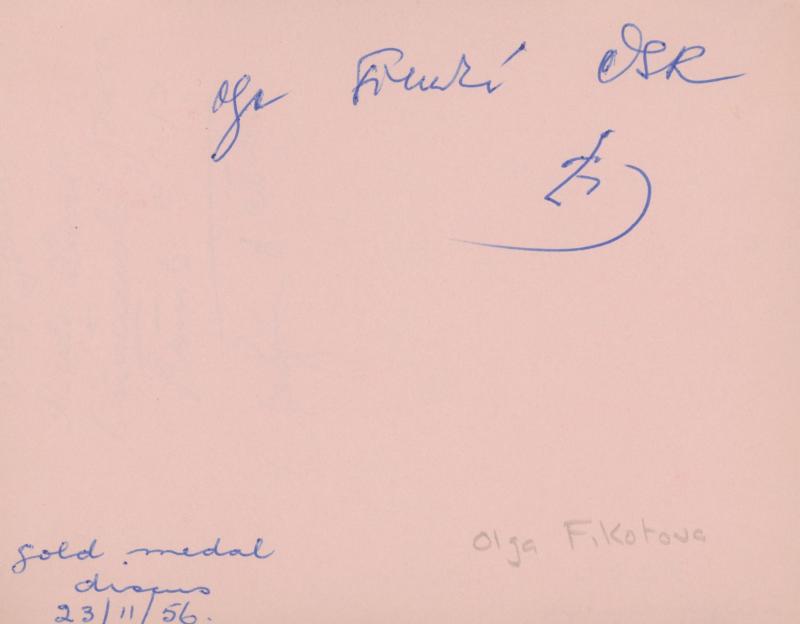 Olga ČSR
Olga Fikotova
gold medal
discus
23/11/56.